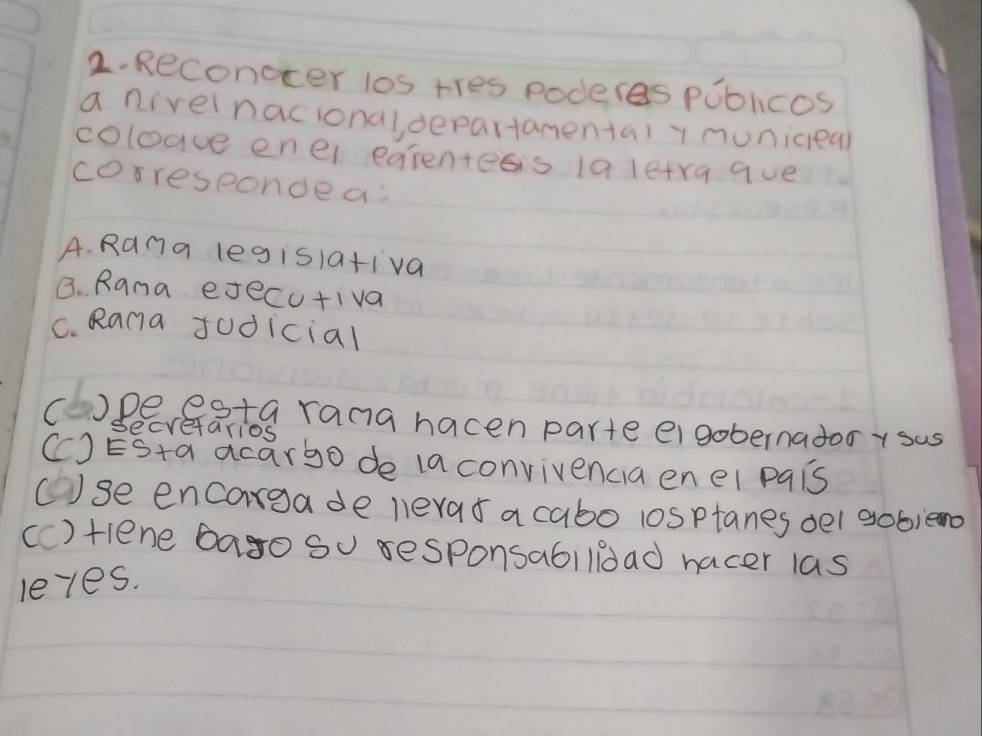 2. Reconocer los tres poderes públicos
a nivel nacional, departamental y municipal
coloque en el paréntesis la letra que
corresponde a:
A. Rama legislativa
B. Rama ejecutiva
C. Rama Judicial
(b) De esta rama hacen parte el gobernador y sus
secretarios
(C) Esta acargo de la convivencia en el país
(a) se encarga de llevar a cabo los planes del gobierno
(C) tiene bajo su responsabilidad hacer las
leyes.